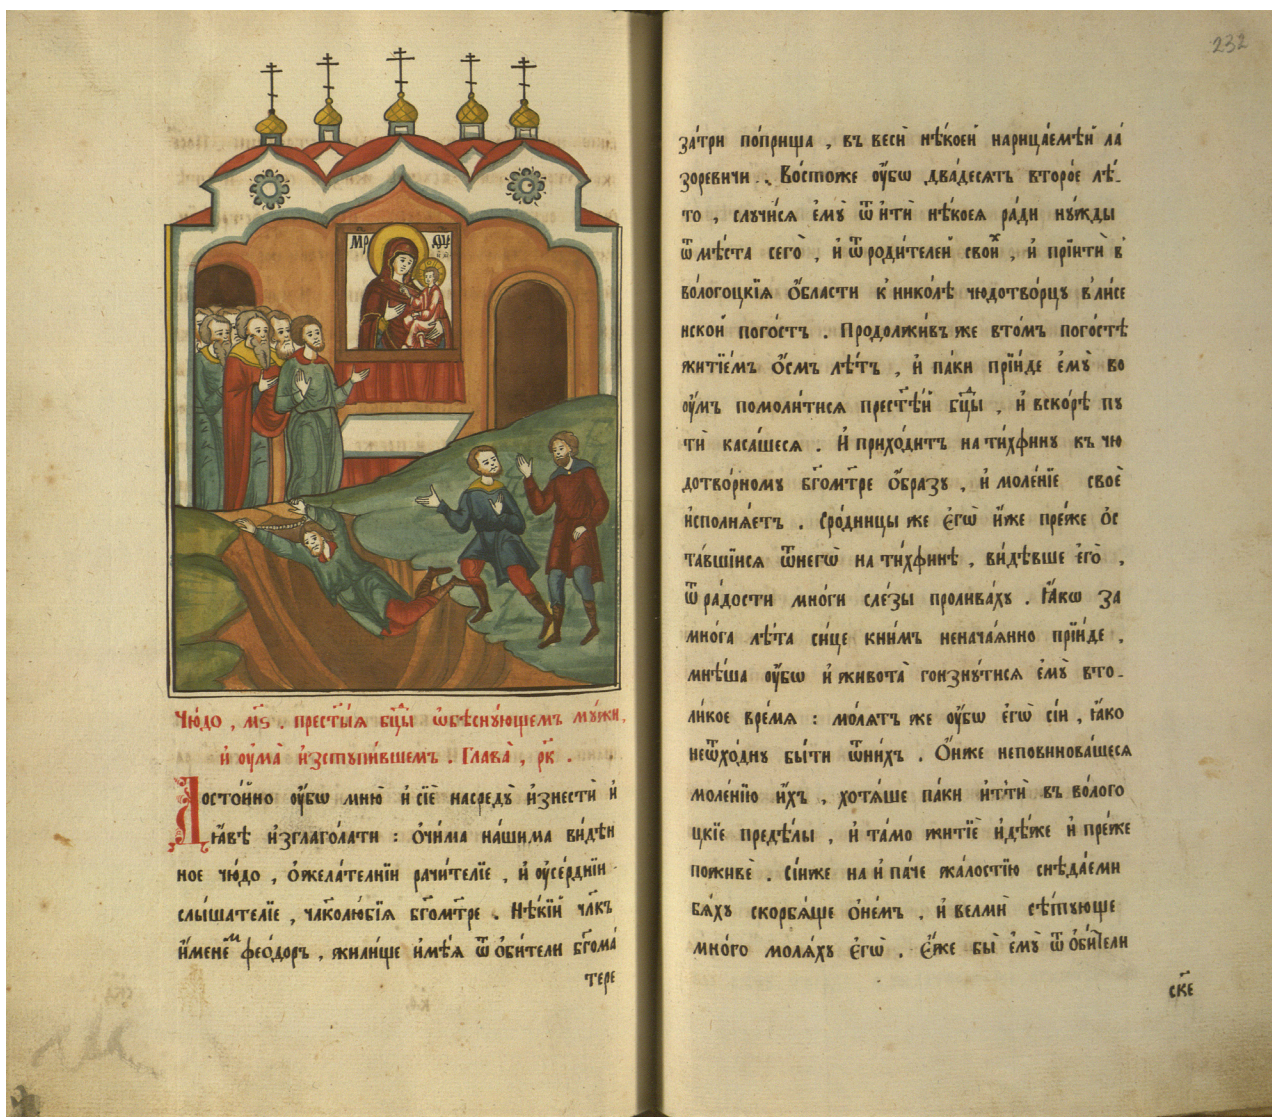 М҃Р Ѳ҃У
Чю́до , м҃ѕ . прест҃ы́ѧ бц҃ы ѡ҆бѣснꙋ́ющемъ мꙋ́жи ,
и҆ ᲂу҆ма̀ и҆зстꙋпи́вшемъ . Глава̀ , рк҃ .
Досто́йно ᲂу҆́бѡ мню̀ и҆ сїѐ насредꙋ̀ и҆знестѝ и҆
ꙗ҆́вѣ и҆зглаго́лати : ѻ҆чи́ма на́шима ви́дѣн
ное чю́до , ѽ жела́телнїи рачи́телїе , и҆ ᲂу҆се́рднїи
слы́шателїе , чл҃колю́бїѧ бг҃омт҃ре . Нѣ́кїй чл҃къ
и҆́менемъ ѳео́доръ , жили́ще и҆мѣ́ѧ ѿ ѻ҆би́тели бг҃ома́
тере
232
за́три по́прища , въ весѝ нѣ́коей нарица́емѣй ла́
зоревичи . Во́стоже ᲂу҆́бѡ два́десѧтъ второ́е лѣ́-
то , слꙋчи́сѧ є҆мꙋ̀ ѿитѝ нѣ́коеѧ ра́ди нꙋ́жды
ѿ мѣ́ста сегѡ̀ , и҆ ѿ роди́телей свои́х , и҆ прїитѝ в̾
во́логоцкїѧ ѻ҆́бласти к̾ нико́лѣ чюдотво́рцꙋ в̾ ли́се
нской пого́стъ . Продолжи́въ же в то́мъ пого́стѣ
житїе́мъ ѻ҆́смъ лѣ́тъ , и҆ па́ки прїи́де є҆мꙋ̀ во
ᲂу҆́мъ помоли́тисѧ прест҃ѣ́й бц҃ы , и҆ вско́рѣ пꙋ
тѝ каса́шесѧ . И҆ прихо́дитъ на ти́хфинꙋ къ чю
дотво́рномꙋ бг҃омт҃ре ѻ҆́бразꙋ , и҆ моле́нїе своѐ
и҆сполнѧ́етъ . Сро́дницы же є҆гѡ̀ и҆̀же пре́же ѻ҆с
та́вшїисѧ ѿнегѡ̀ на ти́хфинѣ , ви́дѣвше є҆го̀ ,
ѿ ра́дости мно́ги сле́зы пролива́хꙋ . Ꙗ҆́кѡ за
мно́га лѣ́та си́це к ни́мъ ненача́ѧнно прїи́де ,
мнѣ́ша ᲂу҆́бѡ и҆ живота̀ гонзнꙋ́тисѧ є҆мꙋ̀ в то-
ли́кое вре́мѧ : мо́лѧтъ же ᲂу҆́бѡ є҆гѡ̀ сі́и , ꙗ҆́ко
неѿхо́днꙋ бы́ти ѿни́хъ . Ѻ҆́нже неповинова́шесѧ
моле́нїю и҆́хъ , хотѧ́ше па́ки и҆ттѝ въ во́лого
цкїе предѣ́лы , и҆ та́мо житїѐ и҆дѣ́же и҆ пре́же
поживѐ . Сі́иже на и҆ па́че жа́лостїю снѣда́еми
бѧ́хꙋ скорбѧ́ще ѻ҆не́мъ , и҆ велмѝ сѣ́тꙋюще
мно́го молѧ́хꙋ є҆гѡ̀ . Е҆́же бы̀ є҆мꙋ̀ ѿ ѻ҆би́тели
ск҃е